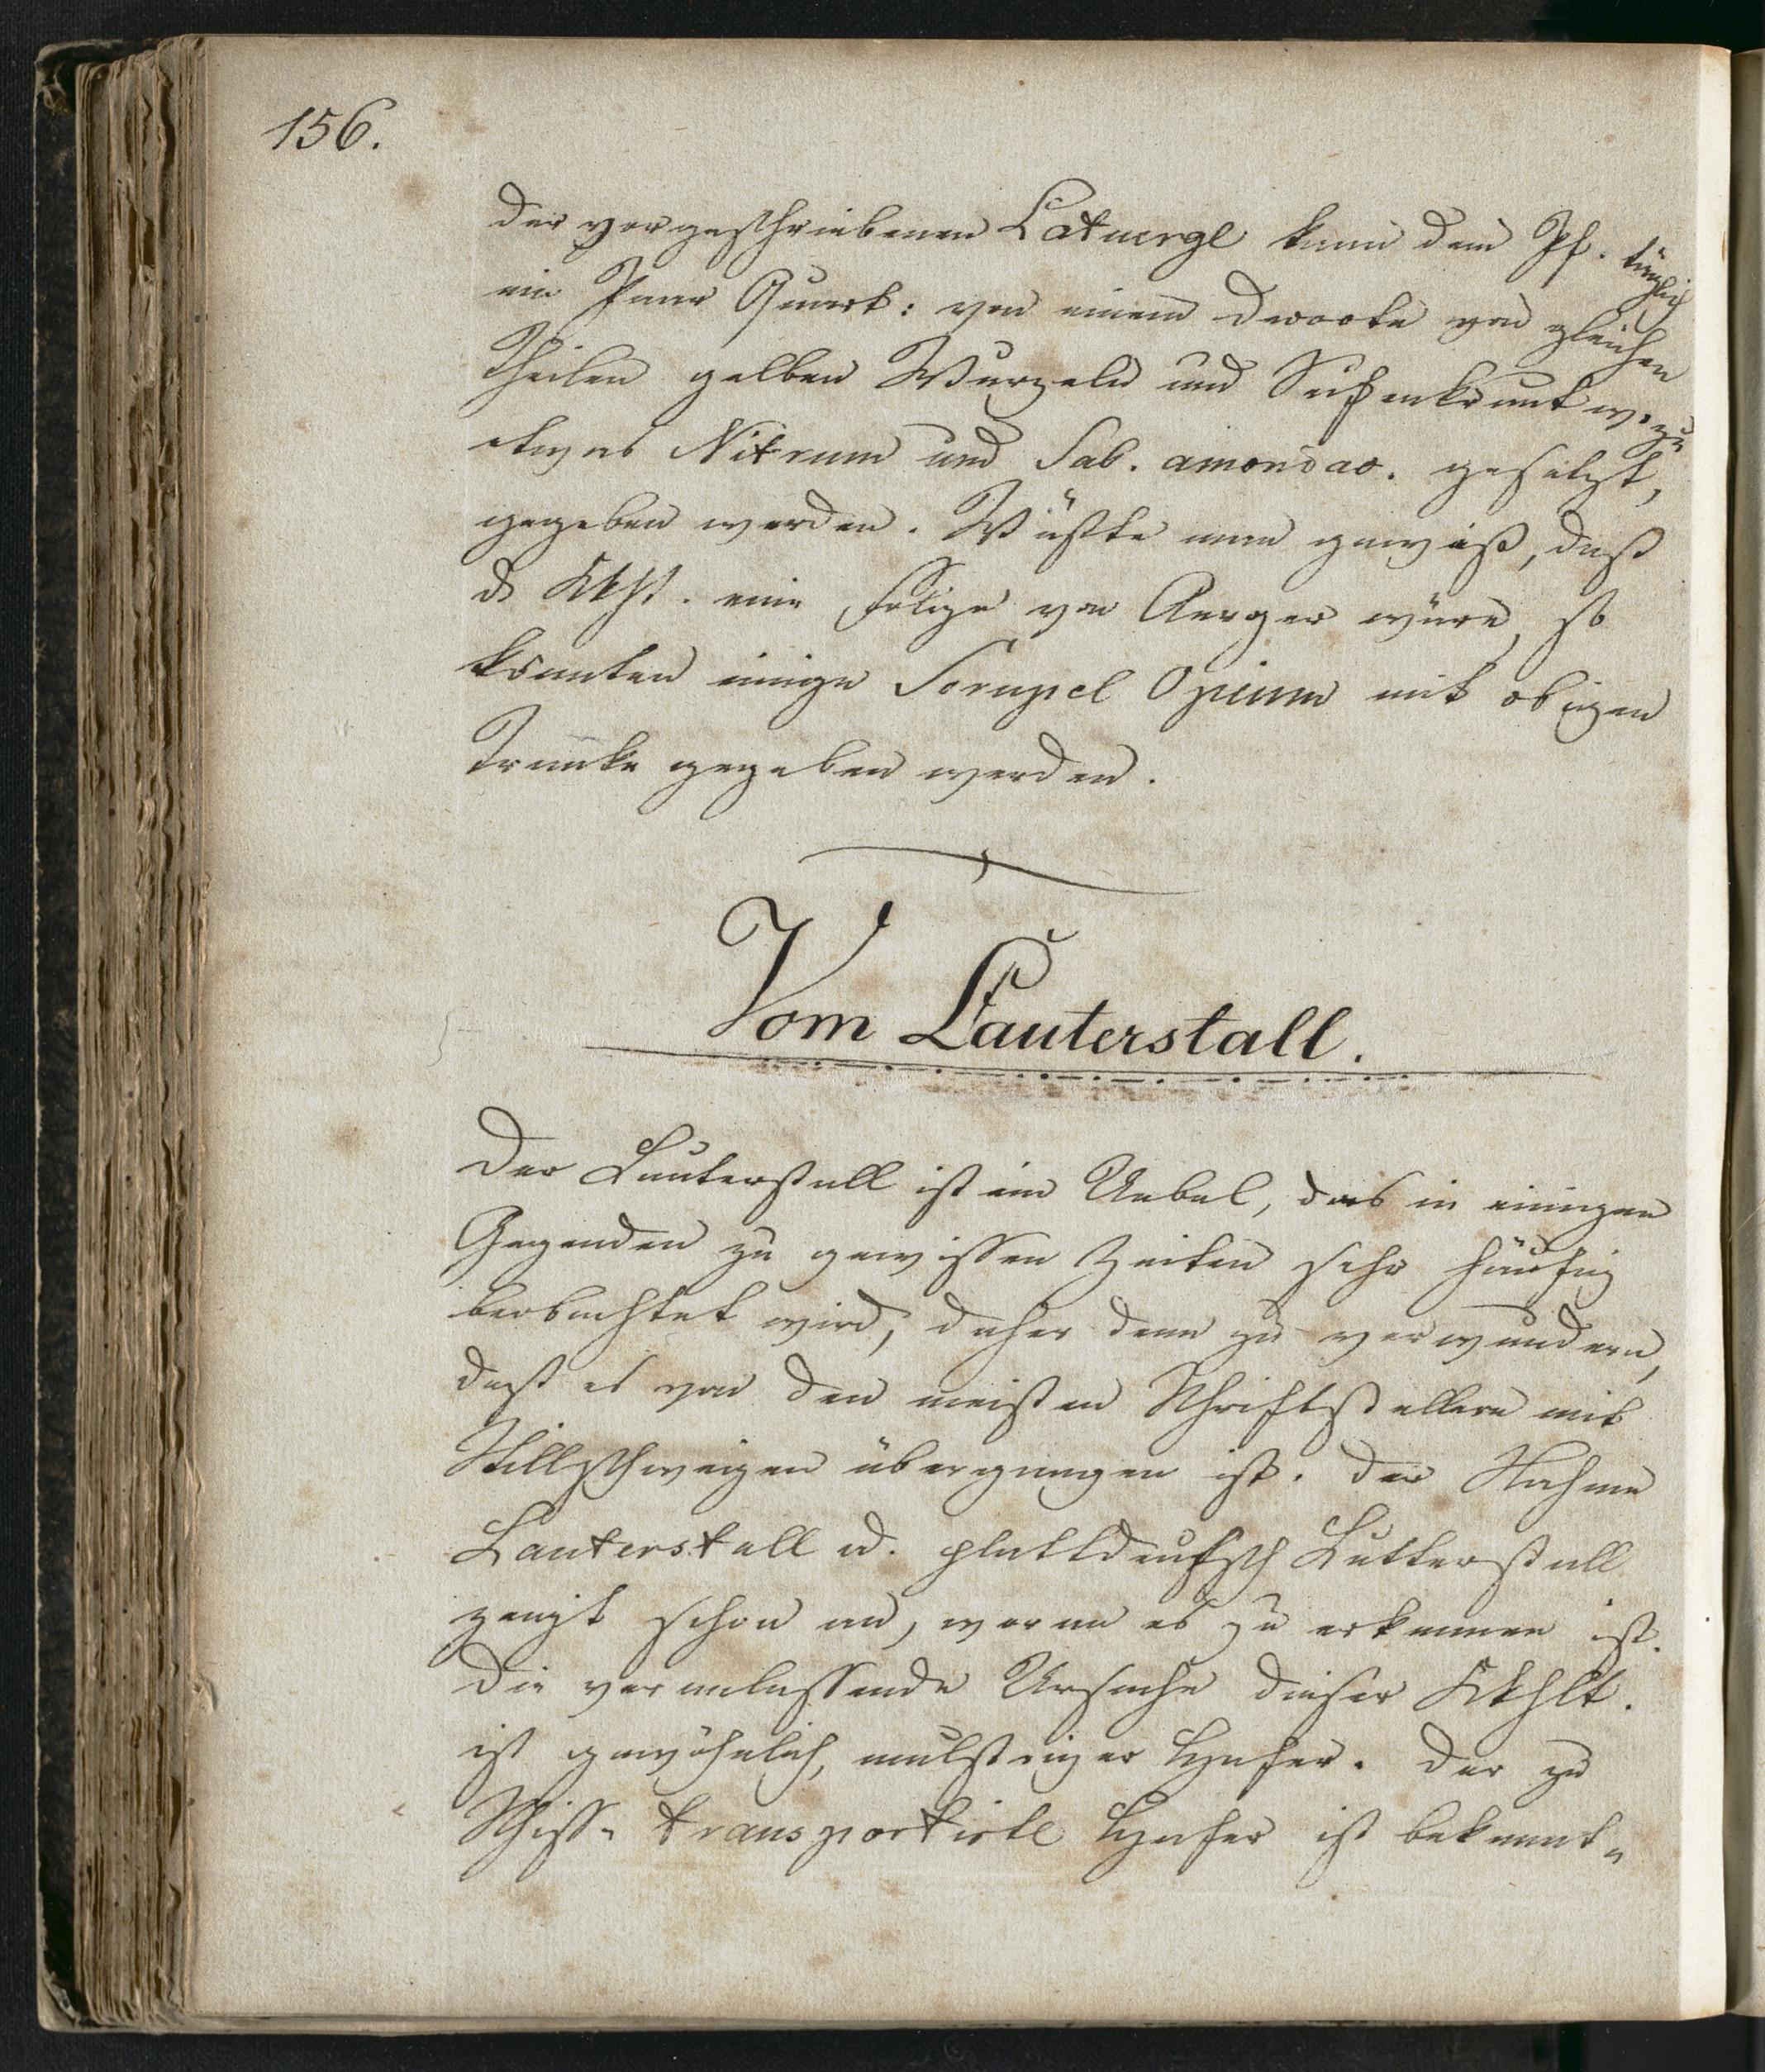 156.
der vorgeschriebenen Latwerge kann dem Pf. täglich
ein Paar Quart: von einem Decockte von gleichen
Theilen gelben Wurzeln und Seifenkraut wozu
etwas Nitrum und Sal. amoniac. gesetzt,
gegeben werden. Wüßte man gewiß, daß
d Kkht. eine Folge von Aerger wäre, so
könnten einige Scrupel Opium mit obigen
Tranke gegeben werden.
Vom Lauterstall.
Der Lauterstall ist ein Uebel, das in einigen
Gegenden zu gewissen Zeiten sehr häufig
beobachtet wird, daher denn zu verwundern,
daß es von den meisten Schriftstellern mit
Stillschweigen übergangen ist. Der Nahme
Lauterstall od. plattdeutsch Lutterstall
zeigt schon an, woran es zu erkennen ist.
Die veranlassende Ursache dieser Kkhlt.
ist gewöhnlich, mulstriger Hafer. Der zu
Schiff- transportirte Hafer ist bekannt-